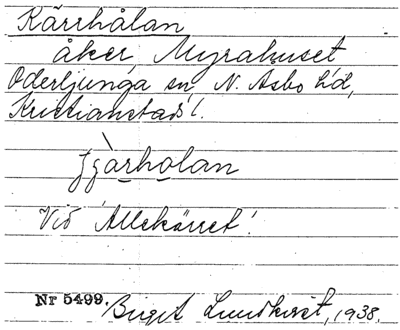 Kärrhålan
åker Myrahuset
Oderljunga sn, N. Åsbo hd,
Kristianstads l.
Vid Allekärret!
Nr 5499. Birgit Lundkvist, 1938.